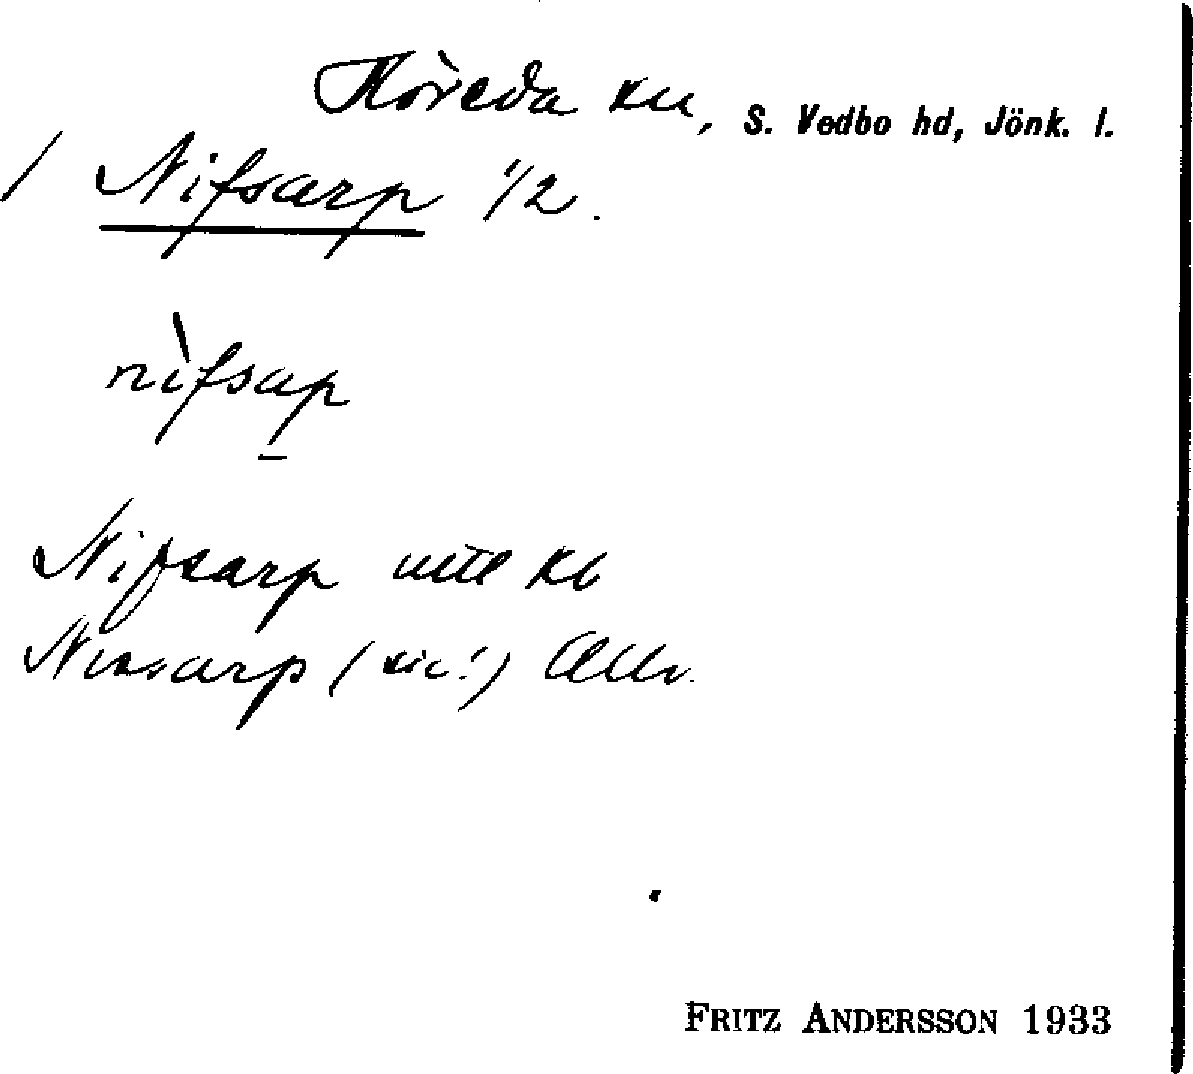 Höreda sn, S. Vedbo hd, Jönk. l.
/ Nifsarp 1/2.
nìfsap
Nifsarp utt Kb
Nissarp (sic!) Allm.
FRITZ ANDERSSON 1933